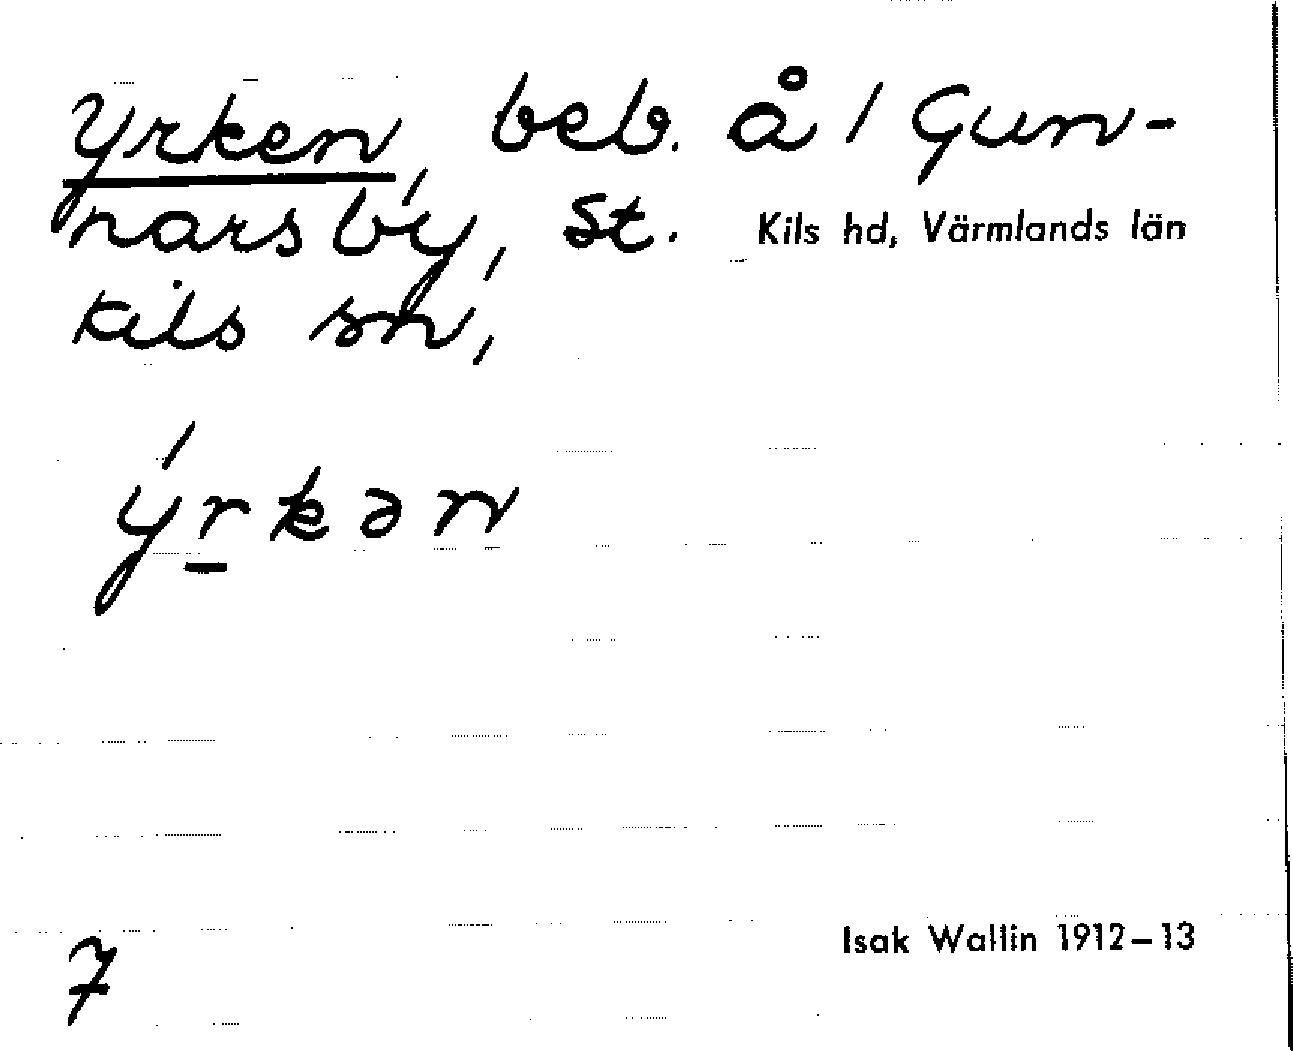 Yrken, beb. å / Gun-
narsby, St. Kils hd, Värmlands län
Kils sn,
ýr̲kən
7
Isak Wallin 1912–13